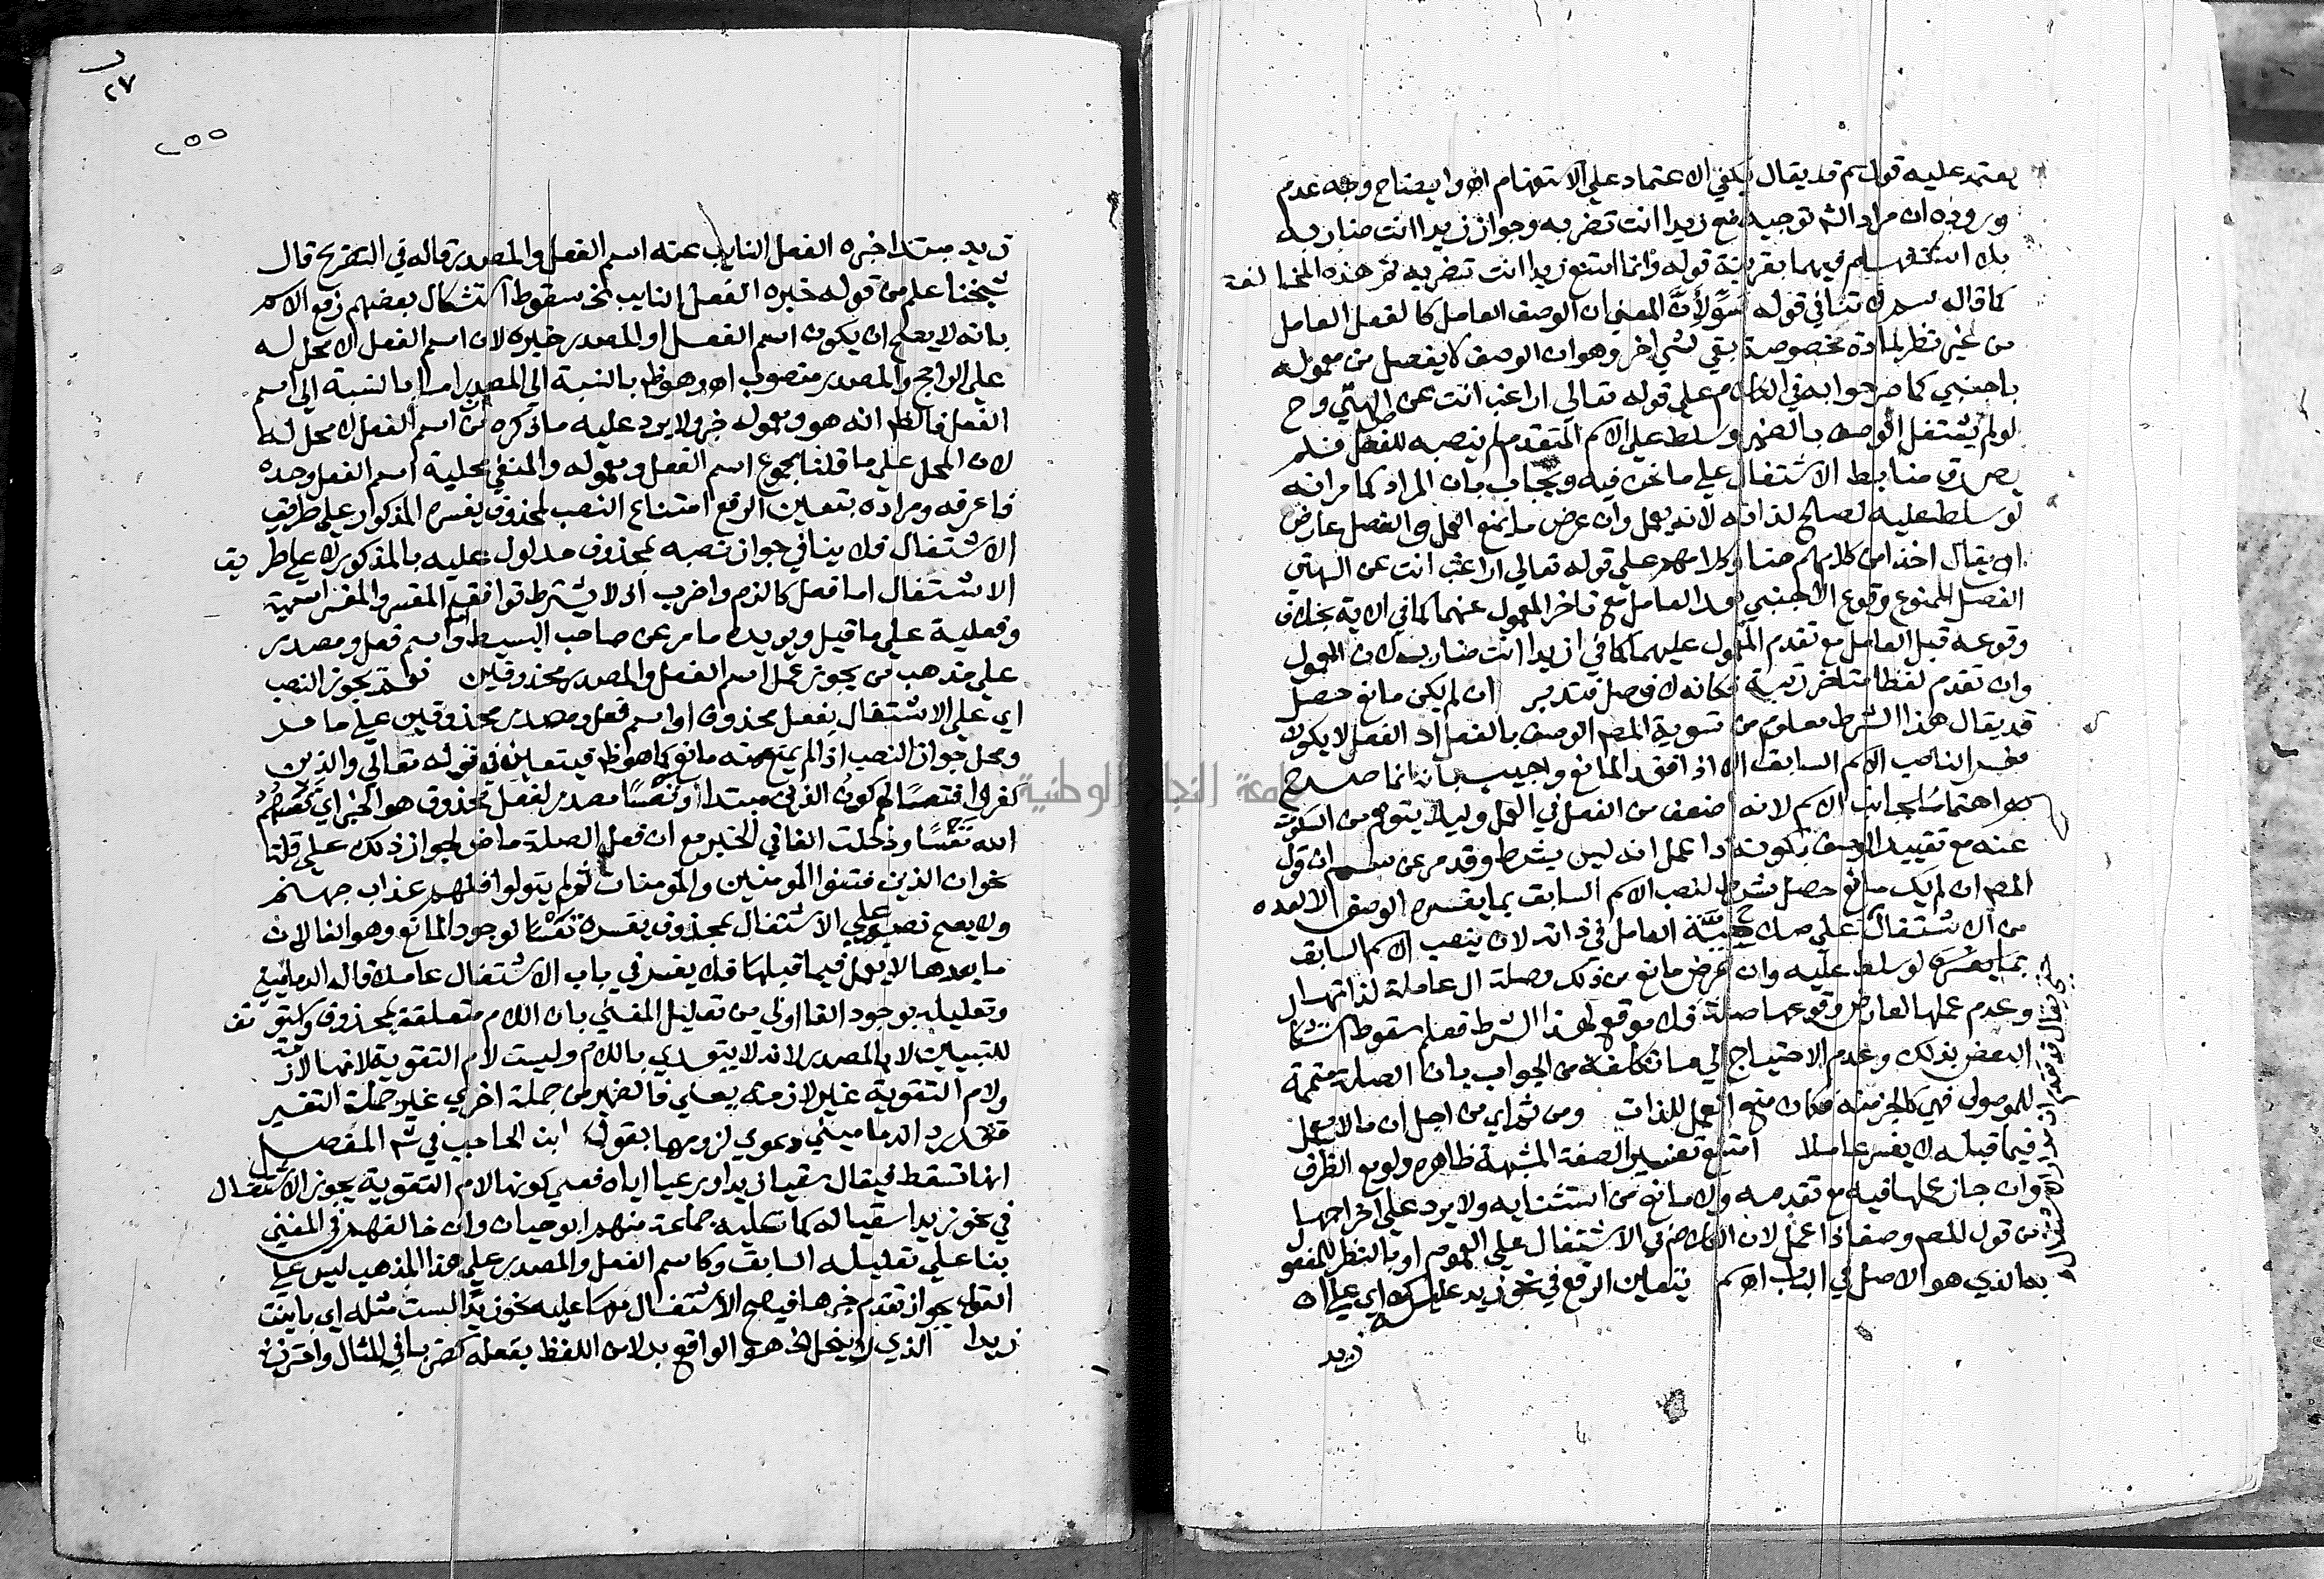 يعتمد عليه قول سم قد يقال يكفي الاعتماد على الاستفهام اه وايضاح وجه عدم
وروده ان مراد الش توجيه منع زيدا انت تضربه وجواز زيدا انت ضاربه
بلا استفهام فيهما بقرينة قوله وانما امتنع زيدا انت تضربه ثم هذه المخالفة
كما قاله سم لا تنافي قوله سوّ لأنّ المعنى ان الوصف العامل كالفعل العامل
من غير نظر لمادة مخصوصة بقي شي اخر وهو ان الوصف لا يفصل من معموله
باجنبي كما صرحوا به في الكلام على قوله تعالى اراغب انت عن الهتي وح
لو لم يشتغل الوصف بالضمير وسلط على الاسم المتقدم لم ينصبه للفصل فلم
يصدق ضابط الاشتغال على ما نحن فيه ويجاب بان المراد كما مر انه
لو سلط عليه لصلح لذاته لانه يعمل وان عرض ما يمنع العمل والفصل عارض
او يقال اخذا من كلامهم هنا وكلامهم على قوله تعالى اراغب انت عن الهتي
الفصل الممنوع وقوع الاجنبي بعد العامل مع تاخر المعمول عنهما كما في الاية بخلاف
وقوعه قبل العامل مع تقدم المعمول عليهما كما في ازيدا انت ضاربه لان المعمول
وان تقدم لفظا متاخر رتبة فكانه لا فصل فتدبر ان لم يكن مانع حصل
قد يقال هذا الشرط معلوم من تسوية المصـ الوصف بالفعل اذ الفعل لا يكون
مفسرا لناصب الاسم السابق الا اذا فقد المانع واجيب بانه انما صرح
به اهتماما بجانب الاسم لانه اضعف من الفعل في العمل وليلا يتوهم من السكوت
عنه مع تقييد الوصف بكونه ذا عمل انه ليس بشرط وقد مر عن سم ان قول
المصـ ان لم يك مانع حصل شرط لنصب الاسم السابق بما يفسره الوصف لا لعده
من الاشتغال على صلاحية العامل في ذاته لان ينصب الاسم السابق
بما يفسره لو سلط عليه وان عرض مانع من ذلك وصلة ال عاملة لذاتها
وعدم عملها لعارض وقوعها صلة فلا موقع لهذا الشرط فعلم سقوط استشكال
البعض بذلك وعدم الاحتياج الى ما تكلفه من الجواب بان الصلة متممة
للموصول فهي كالجزء منه فكان منع العمل للذات ومن ثم اي من اجل ان ما لا يعمل
فيما قبله لا يفسر عاملا امتنع تفسير الصفة المشبهة ظاهره ولو مع الظرف
وان جاز عملها فيه مع تقدمه ولا مانع من استثنايه ولا يرد على اخراجها
من قول المصـ وصفا ذا عمل لان الكلام في الاشتغال على العموم او بالنظر للمفعول
به الذي هو الاصل في الباب اه سم يتعين الرفع في نحو زيد عليكه اي على ان
زيد
زيد مبتدا خبره الفعل النايب عنه اسم الفعل والمصدر قاله في التصريح قال
شيخنا علم من قوله خبره الفعل النايب الخ سقوط استشكال بعضهم رفع الاسم
بانه لا يصح ان يكون اسم الفعل او المصدر خبره لان اسم الفعل لا محل له
على الراجح والمصدر منصوب اه وهو ظ بالنسبة الى المصدر اما بالنسبة الى اسم
الفعل فالظ انه هو ومعموله خبر ولا يرد عليه ما ذكره من ان اسم الفعل لا محل له
لان المحل على ما قلنا لمجموع اسم الفعل ومعموله والمنفي محلية اسم الفعل وحده
فاعرفه ومراده بتعين الرفع امتناع النصب لمحذوف يفسره المذكور على طريق
الاشتغال فلا ينافي جواز نصبه بمحذوف مدلول عليه بالمذكور لا على طريق
الاشتغال اما فعل كالزم واضرب اذ لا يشترط توافق المفسر والمفسر اسمية
وفعلية على ما قيل ويويده ما مر عن صاحب البسيط او اسم فعل ومصدر
على مذهب من يجوز عمل اسم الفعل والمصدر محذوفين نعم يجوز النصب
اي على الاشتغال بفعل محذوف او اسم فعل ومصدر محذوفين على ما مر
ومحل جواز النصب اذا لم يمنع منه مانع كما هو ظ فيتعين في قوله تعالى والذين
كفروا فتعسا لهم كون الذين مبتدا وتعسا مصدر لفعل محذوف هو الخبر اي تعسهم
الله تعسا ودخلت الفا في الخبر مع ان فعل الصلة ماض لجواز ذلك على قلة
نحو ان الذين فتنوا المومنين والمومنات ثم لم يتوبوا فلهم عذاب جهنم
ولا يصح نصبه على الاشتغال بمحذوف يفسره تعسا لوجود المانع وهو الفا لان
ما بعدها لا يعمل فيما قبلها فلا يفسر في باب الاشتغال عاملا قاله الدماميني
وتعليله بوجود الفا اولى من تعليل المغني بان اللام متعلقة بمحذوف
للتبيين لا بالمصدر لانه لا يتعدي باللام وليست لام التقوية لانها لازمة
ولام التقوية غير لازمة يعني فالضمير من جملة اخري غير جملة التفسير
فقد رد الدماميني دعوي لزومها بقول ابن الحاجب في شـ المفصل
انها تسقط فيقال سقيا زيدا ورعيا اياه فعلى كونها لام التقوية يجوز الاشتغال
في نحو زيدا سقيا له كما عليه جماعة منهم ابو حيان وان خالفهم في المغني
بنا على تعليله السابق وكاسم الفعل والمصدر على هذا المذهب ليس على
القول بجواز تقدم خبرها فيصح الاشتغال بها عليه نحو زيدا لست مثله اي باينت
زيدا الذي لا ينحل الخ هو الواقع بدلا من اللفظ بفعله كضربا في المثال واحترز